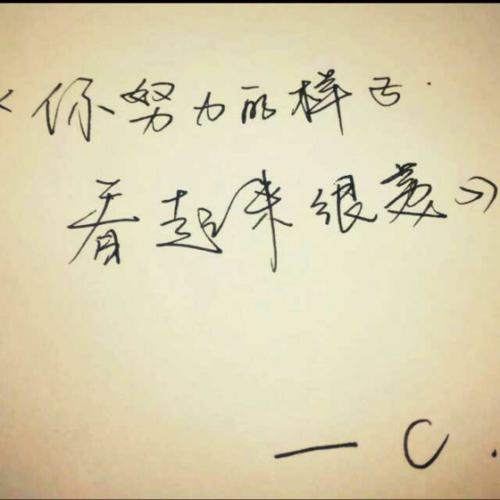 《你努力的样子
看起来很美》
— C.